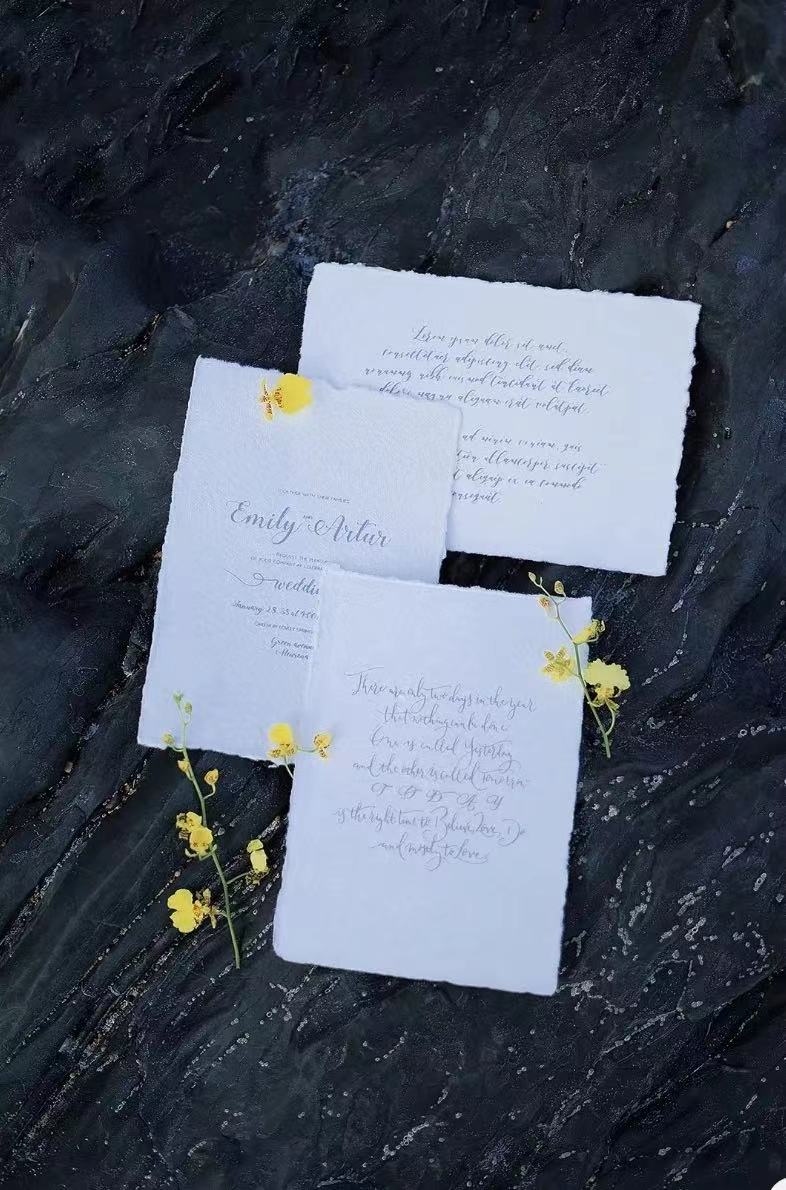 Lorem ypsum dolor sit amet,
consectetuer adipiscing elit, sed diam
nonummy nibh euismod tincidunt ut laoreet
dolore magna aliquam erat volutpat.
ad minim veniam, quis
tion ullamcorper suscipit
t aliquip ex ea commodo
onsequat.
TOGETHER WITH THEIR FAMILIES
Emily AND Artur
REQUEST THE
OF YOUR COMPANY
weddi
January 28.
Green avenue
There are only two days in the year
that nothing can be done
One is called Yesterday
and the other is called Tomorrow
T O D A Y
is the right time to Believe, Love, Do
and mostly to Love